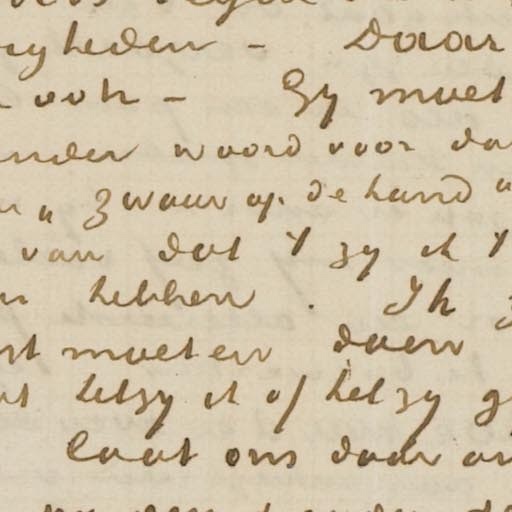 gheden - Daar
ook - Gy moet
ander woord voor da
„ zwaar op de hand "
van dat 't zy ik 't
hebben . Ik
moeten doen
hetzy ik of hetzy g
laat ons daar